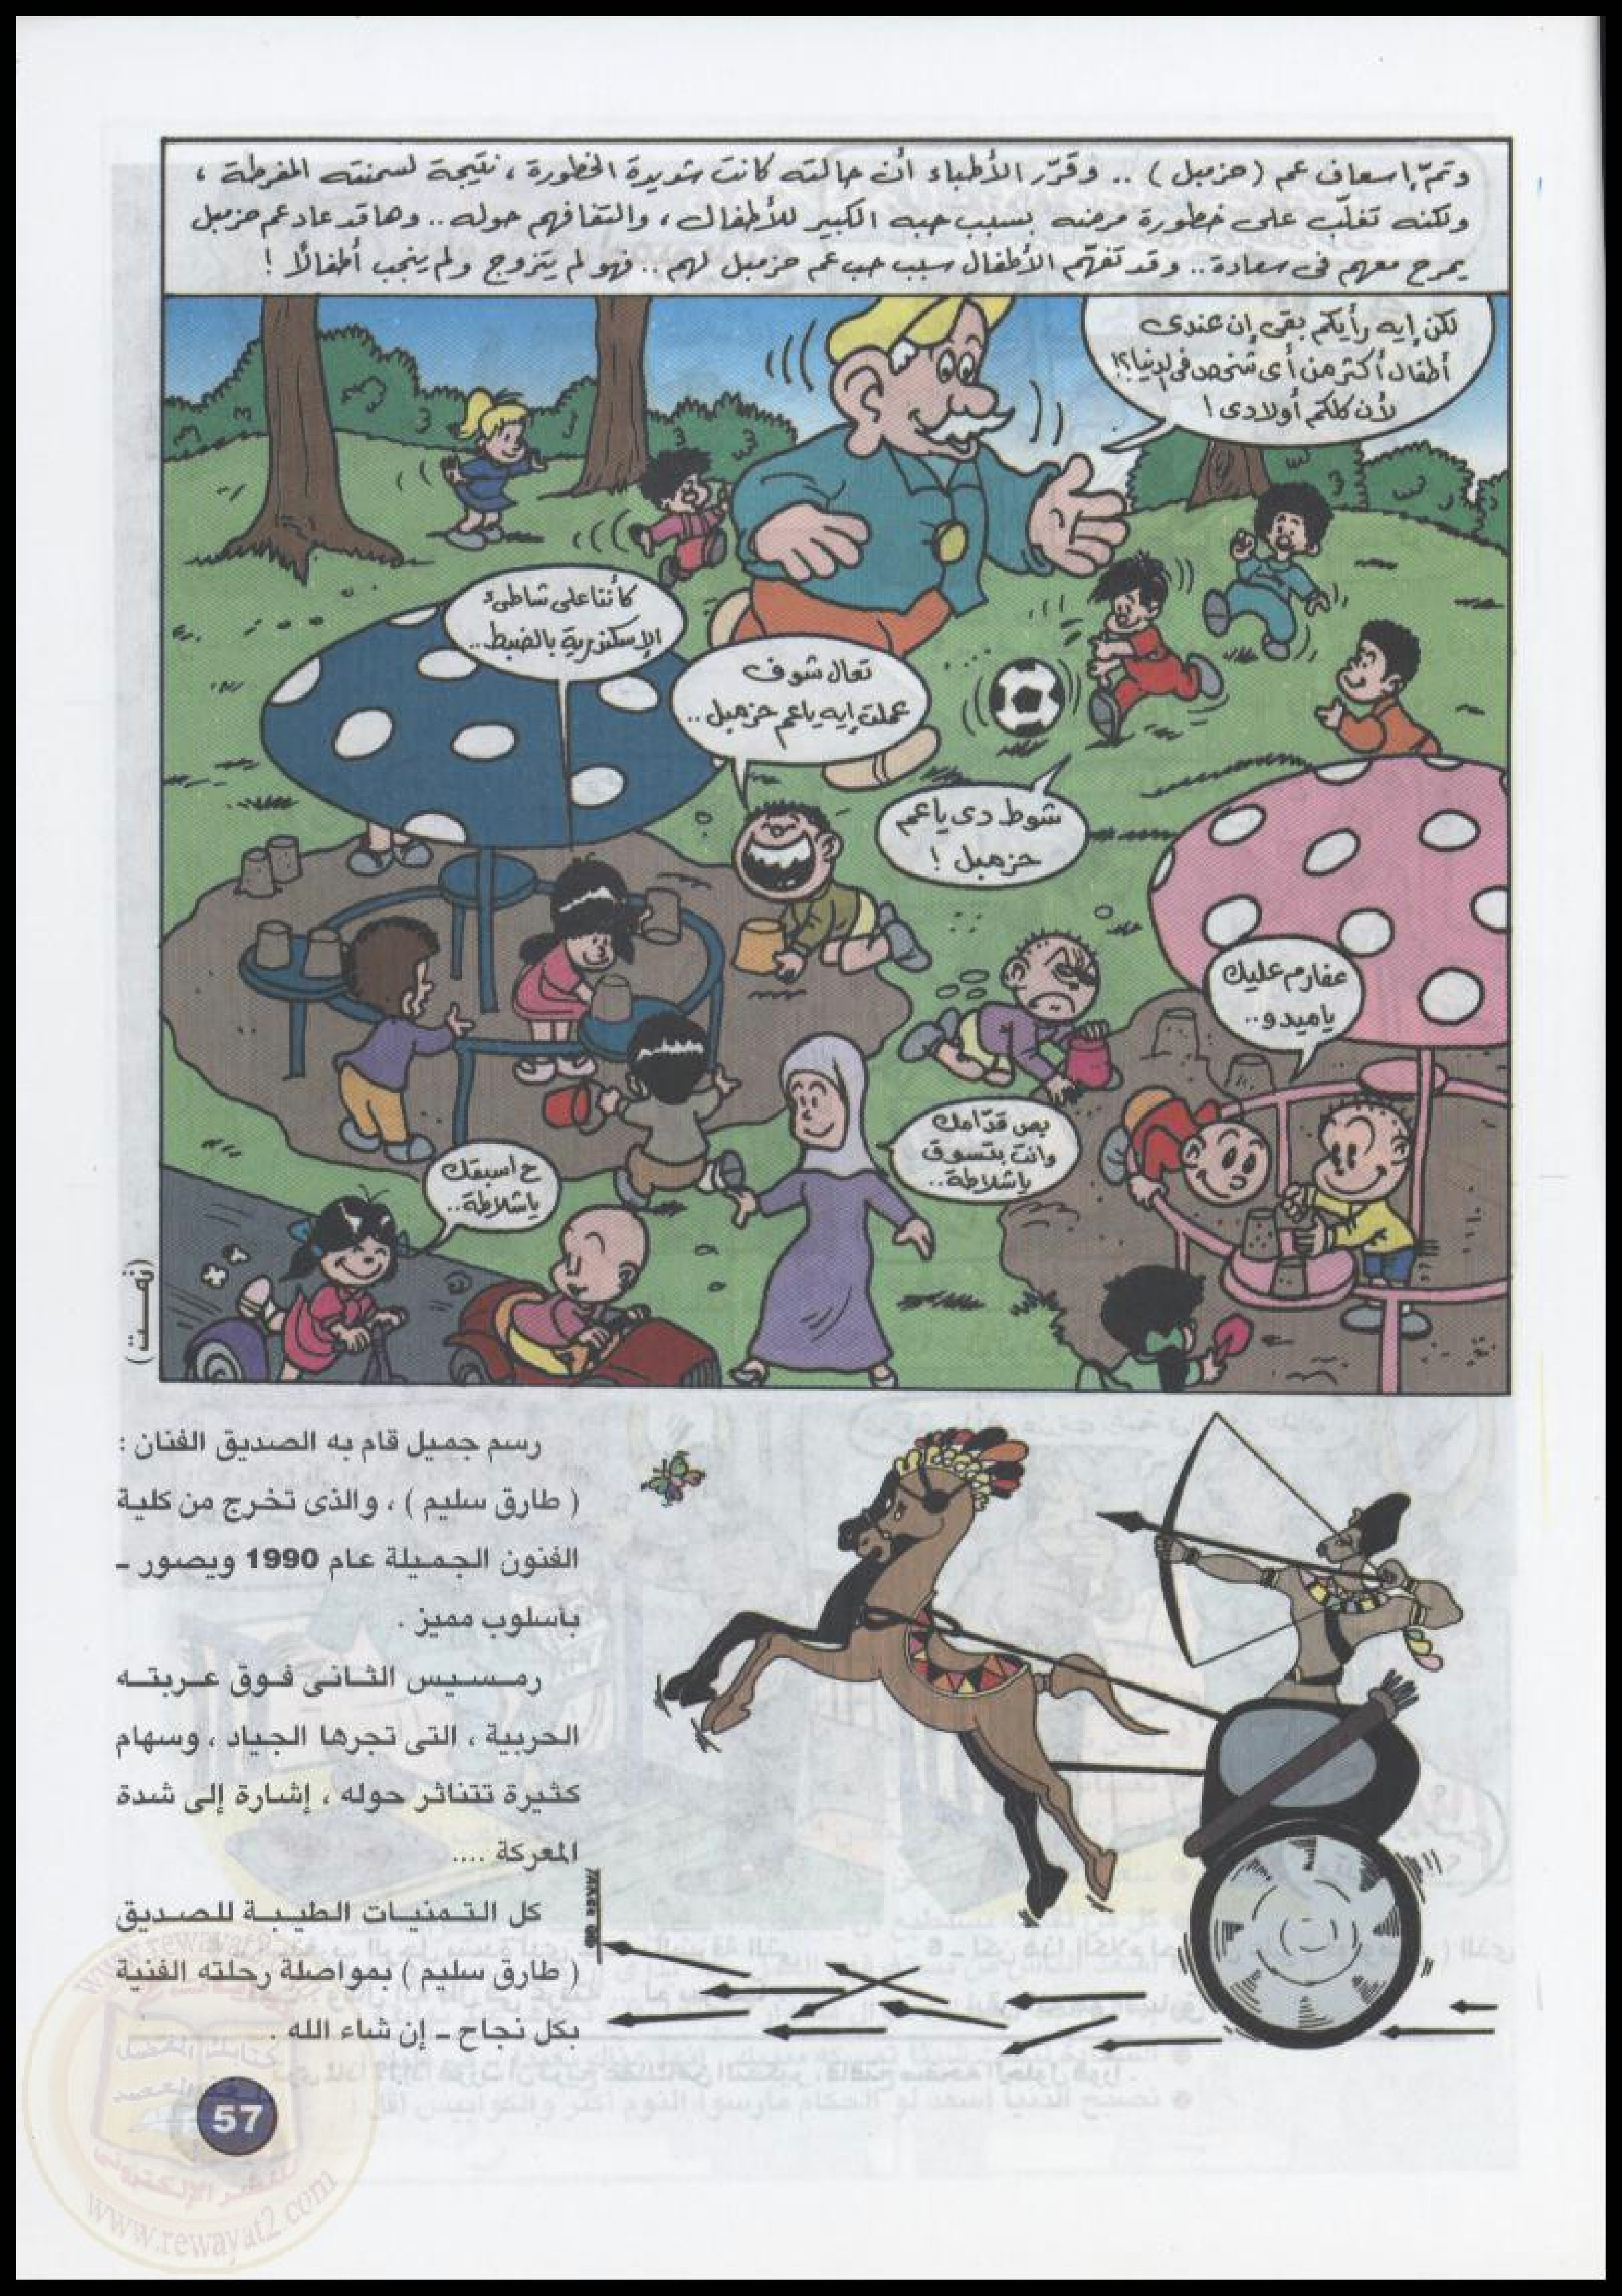 وتمّ إسعاف عم (حزمبل) .. وقرّر الأطباء أن حالته كانت شديدة الخطورة ، نتيجة لسمنته المفرطة ،
ولكنه تغلّب على خطورة مرضه بسبب حبه الكبير للأطفال ، والتفافهم حوله .. وها قد عاد عم حزمبل
يمرح معهم فى سعادة .. وقد تفهّم الأطفال سبب حب عم حزمبل لهم .. فهو لم يتزوج ولم ينجب أطفالًا !
لكن إيه رأيكم بقى إن عندى
أطفال أكتر من أى شخص فى الدنيا ؟!
لأن كلكم أولادى !
كأننا على شاطئ
الإسكندرية بالضبط ..
تعال شوف
عملت إيه يا عم حزمبل ..
شوط دى يا عم
حزمبل !
عفارم عليك
يا ميدو ..
بص قدّامك
وانت بتسوق
يا شلاطة ..
ح أسبقك
يا شلاطة ..
(تمـــت)
رسم جميل قام به الصديق الفنان :
( طارق سليم ) ، والذى تخرج من كلية
الفنون الجميلة عام 1990 ويصور -
بأسلوب مميز .
رمسيس الثانى فوق عربته
الحربية ، التى تجرها الجياد ، وسهام
كثيرة تتناثر حوله ، إشارة إلى شدة
المعركة ....
كل التمنيات الطيبة للصديق
( طارق سليم ) بمواصلة رحلته الفنية
بكل نجاح - إن شاء الله .
57
www.rewayat2.com